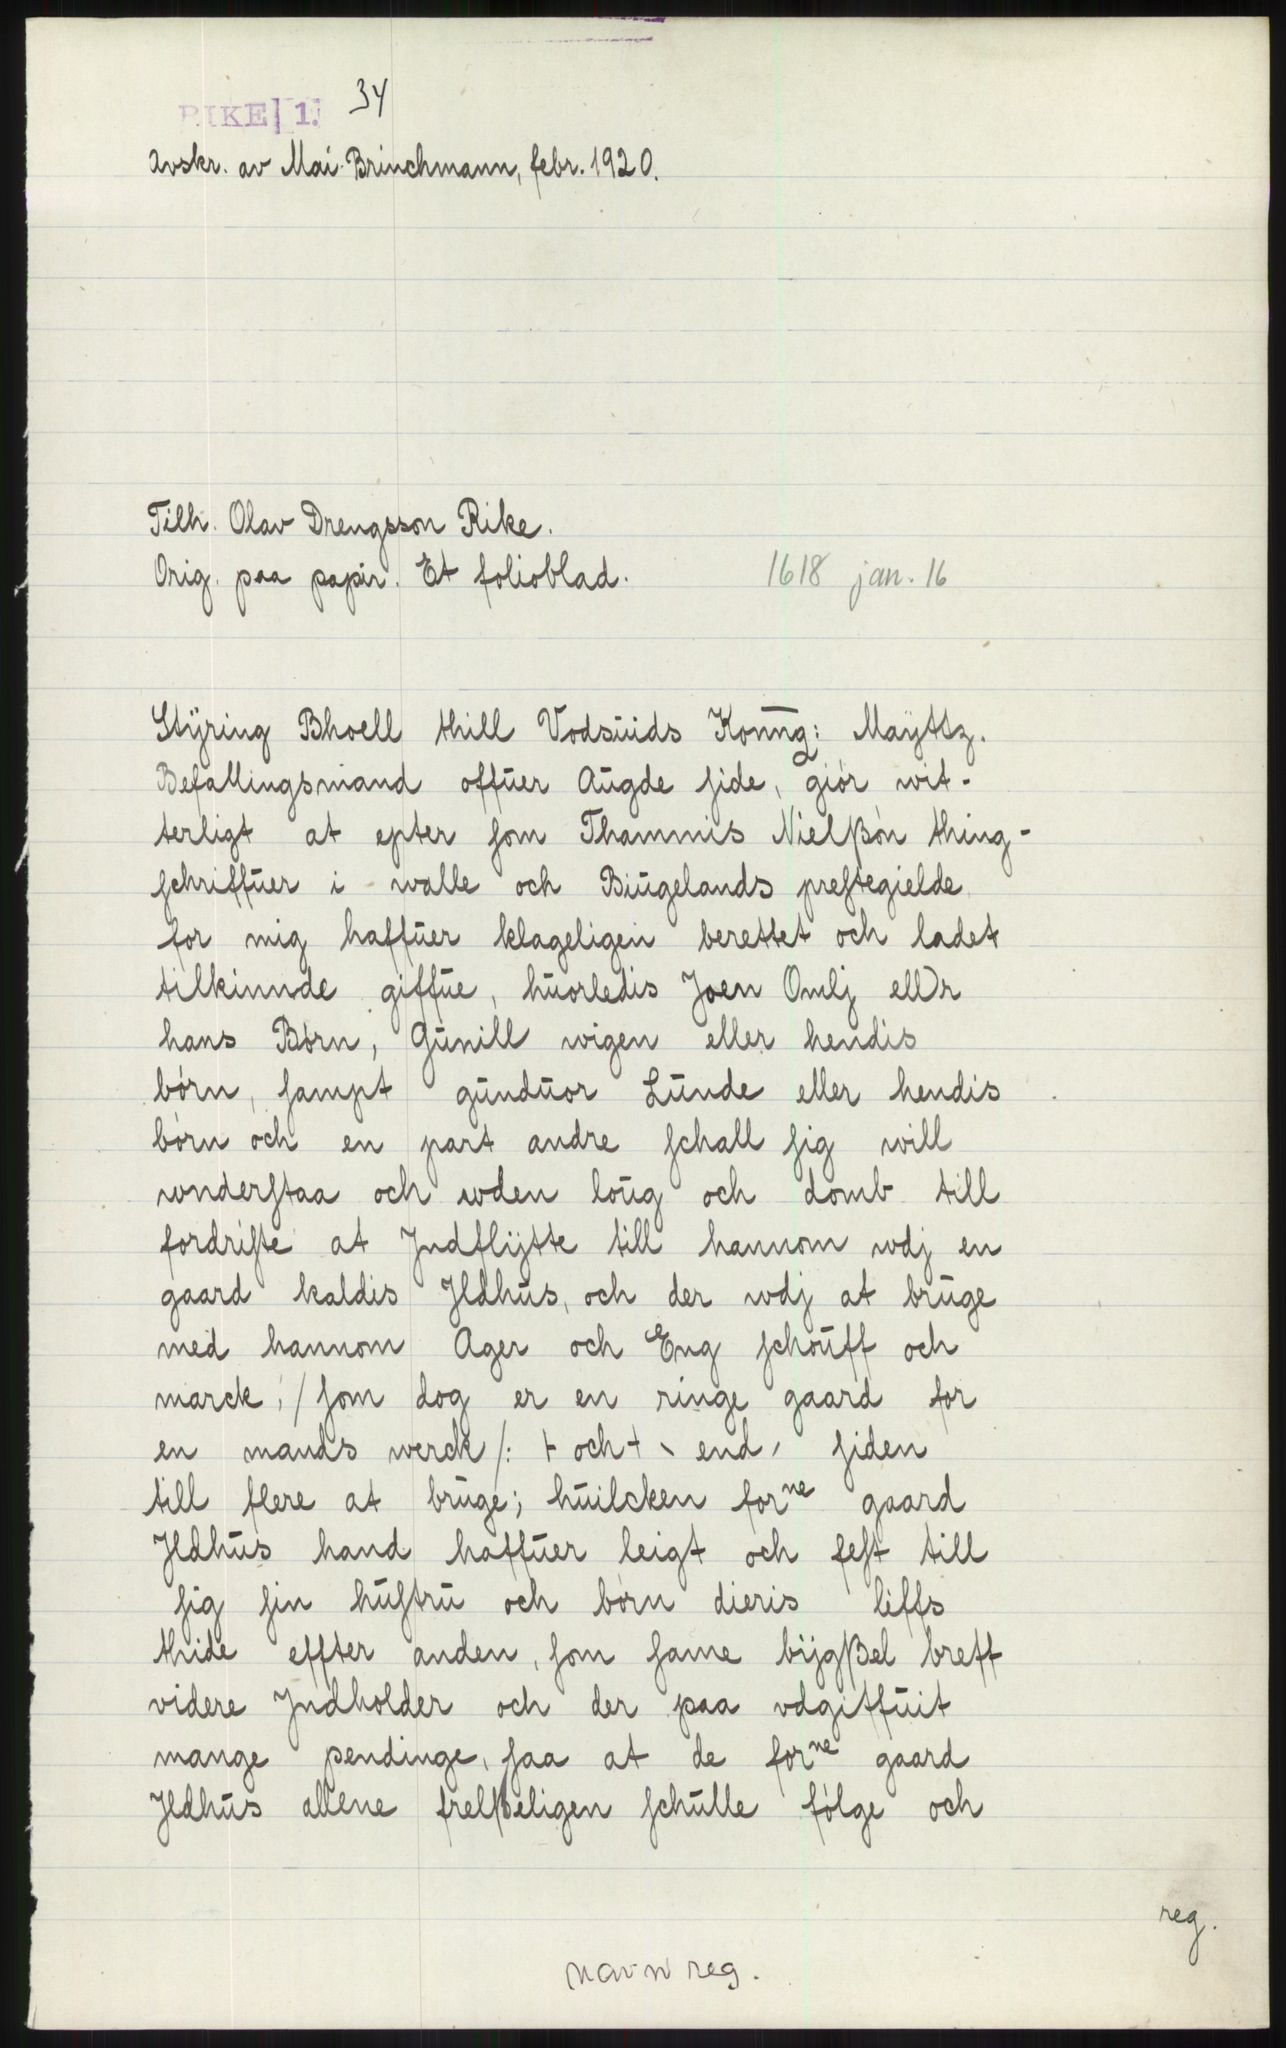 RIKE 1. 34
Avskr. av Mai Brinchmann, febr. 1920.
Tilh. Olav Drengsson Rike.
Orig. paa papir. Et folioblad. 1618 jan. 16
Stÿring Bhoell thill Vodsuids Konng: Maÿttz.
Befallingsmand offuer Augde ſide, giór wit-
terligt at epter ſom Thammis Nielßón thing-
ſchriffuer i walle och Biugelands preſtegielde
for mig haffuer klageligen berettet och ladet
tilkinnde giffue, huorledis Joen Omlj eller
hans Børn, Gunill wigen eller hendis
børn, ſampt gunduor Lunde eller hendis
børn och en part andre ſchall ſig will
wnderſtaa och wden loug och domb till
fordriſte at Jndflÿtte till hannom wdj en
gaard kaldis Jldhus, och der wdj at bruge
med hannom Ager och Eng ſchouff och
marck, / ſom dog er en ringe gaard for
en mands werck /: + och + end ſiden
till flere at bruge; huilcken forne gaard
Jldhus hand haffuer leigt och feſt till
ſig ſin huſtru och børn dieris liffs
thide effter anden, ſom ſame bÿgßel breff
videre Jndholder och der paa vdgiffuit
mange pendinge, ſaa at de forne gaard
Jldhus allene frelßeligen ſchulle følge och
reg.
navn reg.